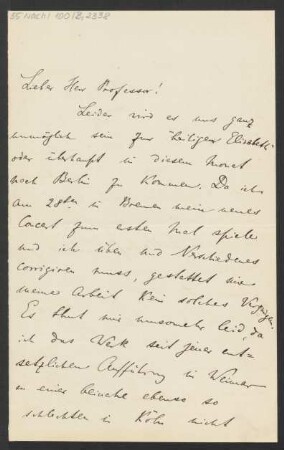 55 Nachl 100/B, 2338
Lieber Herr Professor!
Leider wird es uns ganz
unmöglich sein zur heiligen Elisabeth
oder überhaupt in diesem Monat
nach Berlin zu kommen. Da ich
am 28ten in Bremen mein neues
Concert zum ersten Mal spiele
und ich üben und Verschiedenes
corrigiren muss, gestattet mir
meine Arbeit kein solches Vergnügen.
Es thut mir umsomehr leid, da
ich das Werk seit jener ent-
setzlichen Aufführung in Weimar
u einer beinahe ebenso so
schlechten in Köln nicht